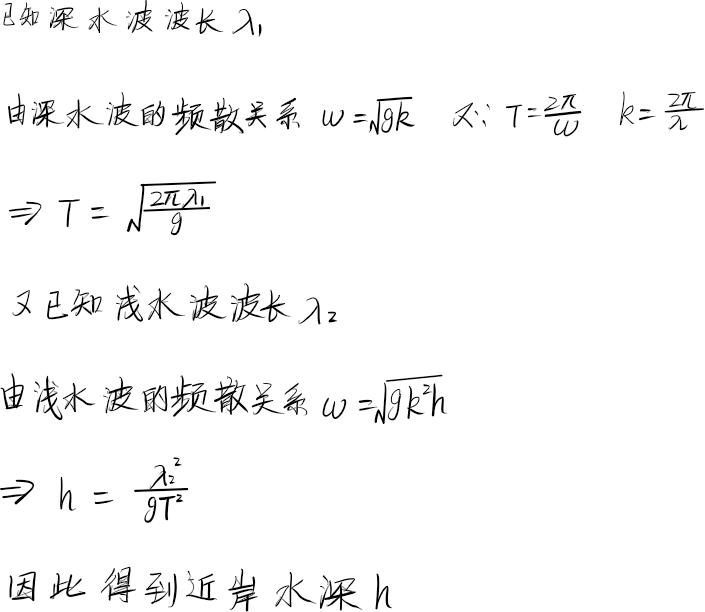 已知深水波波长 λ₁
由深水波的频散关系 ω=√(gk) 又∵ T=2π/ω k=2π/λ
⇒ T = √(2πλ₁/g)
又已知浅水波波长 λ₂
由浅水波的频散关系 ω=√(gk²h)
⇒ h = λ₂²/(gT²)
因此得到近岸水深 h